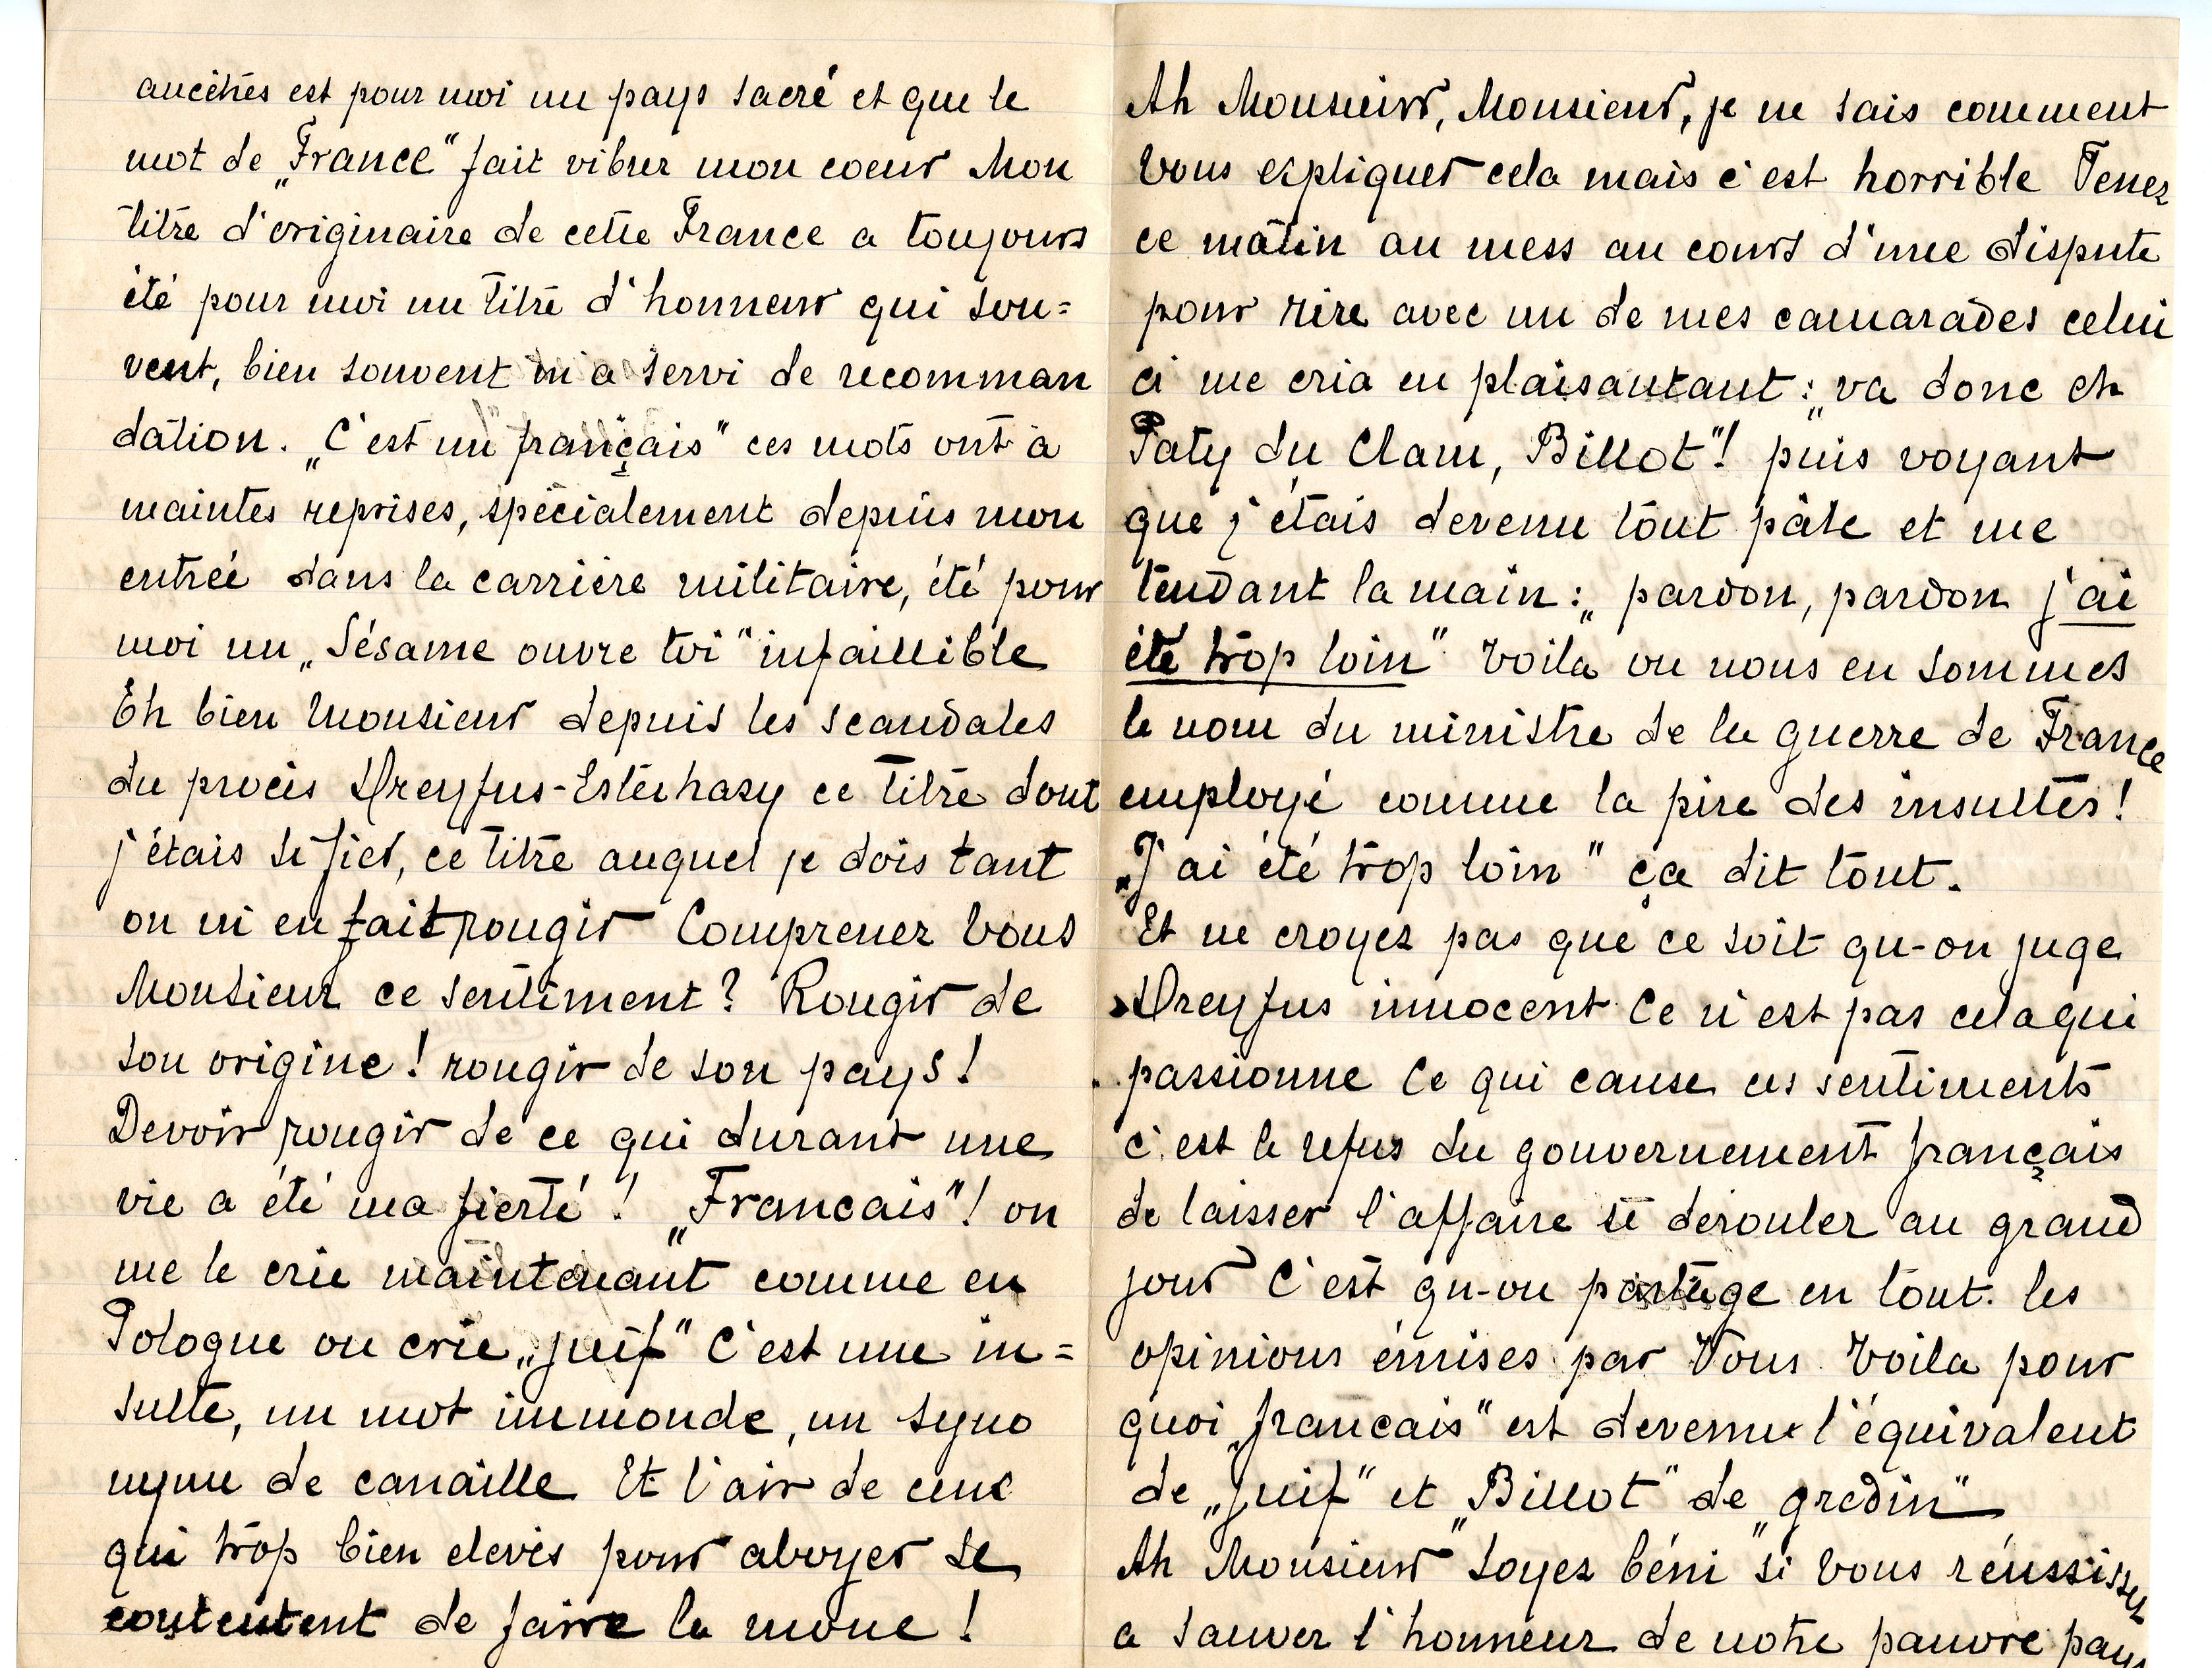 ancêtres est pour moi un pays sacré et que le
mot de „France" fait vibrer mon coeur Mon
titre d'originaire de cette France a toujours
été pour moi un titre d'honneur qui sou=
vent, bien souvent m'a servi de recomman
dation. „C'est un français" ces mots ont à
maintes reprises, spécialement depuis mon
entrée dans la carrière militaire, été pour
moi un „Sésame ouvre toi" infaillible
Eh bien Monsieur depuis les scandales
du procès Dreyfus-Esterhasy ce titre dont
j'étais si fier, ce titre auquel je dois tant
on m'en fait rougir Comprenez Vous
Monsieur ce sentiment? Rougir de
son origine! rougir de son pays!
Devoir rougir de ce qui durant une
vie a été ma fierté! „Francais"! on
me le crie maintenant comme en
Pologne on crie „juif" C'est une in=
sulte, un mot immonde, un syno
nyme de canaille Et l'air de ceux
qui trop bien elevés pour aboyer se
contentent de faire la moue!
Ah Monsieur, Monsieur, je ne sais comment
Vous expliquer cela mais c'est horrible Tenez
ce matin au mess au cours d'une dispute
pour rire avec un de mes camarades celui
ci me cria en plaisantant: „va donc eh
Paty du Clam, Billot"! puis voyant
que j'étais devenu tout pâle et me
tendant la main: „pardon, pardon j'ai
été trop loin" Voila ou nous en sommes
le nom du ministre de la guerre de France
employé comme la pire des insultes!
„J'ai été trop loin" ça dit tout.
Et ne croyez pas que ce soit qu-on juge
Dreyfus innocent Ce n'est pas cela qui
passionne Ce qui cause ces sentiments
c'est le refus du gouvernement français
de laisser l'affaire se derouler au grand
jour C'est qu-on partage en tout les
opinions émises par Vous. Voila pour
quoi „francais" est devenu l'équivalent
de „juif" et „Billot" de „gredin"
Ah Monsieur soyez béni si Vous réussissez
a sauver l'honneur de notre pauvre pays